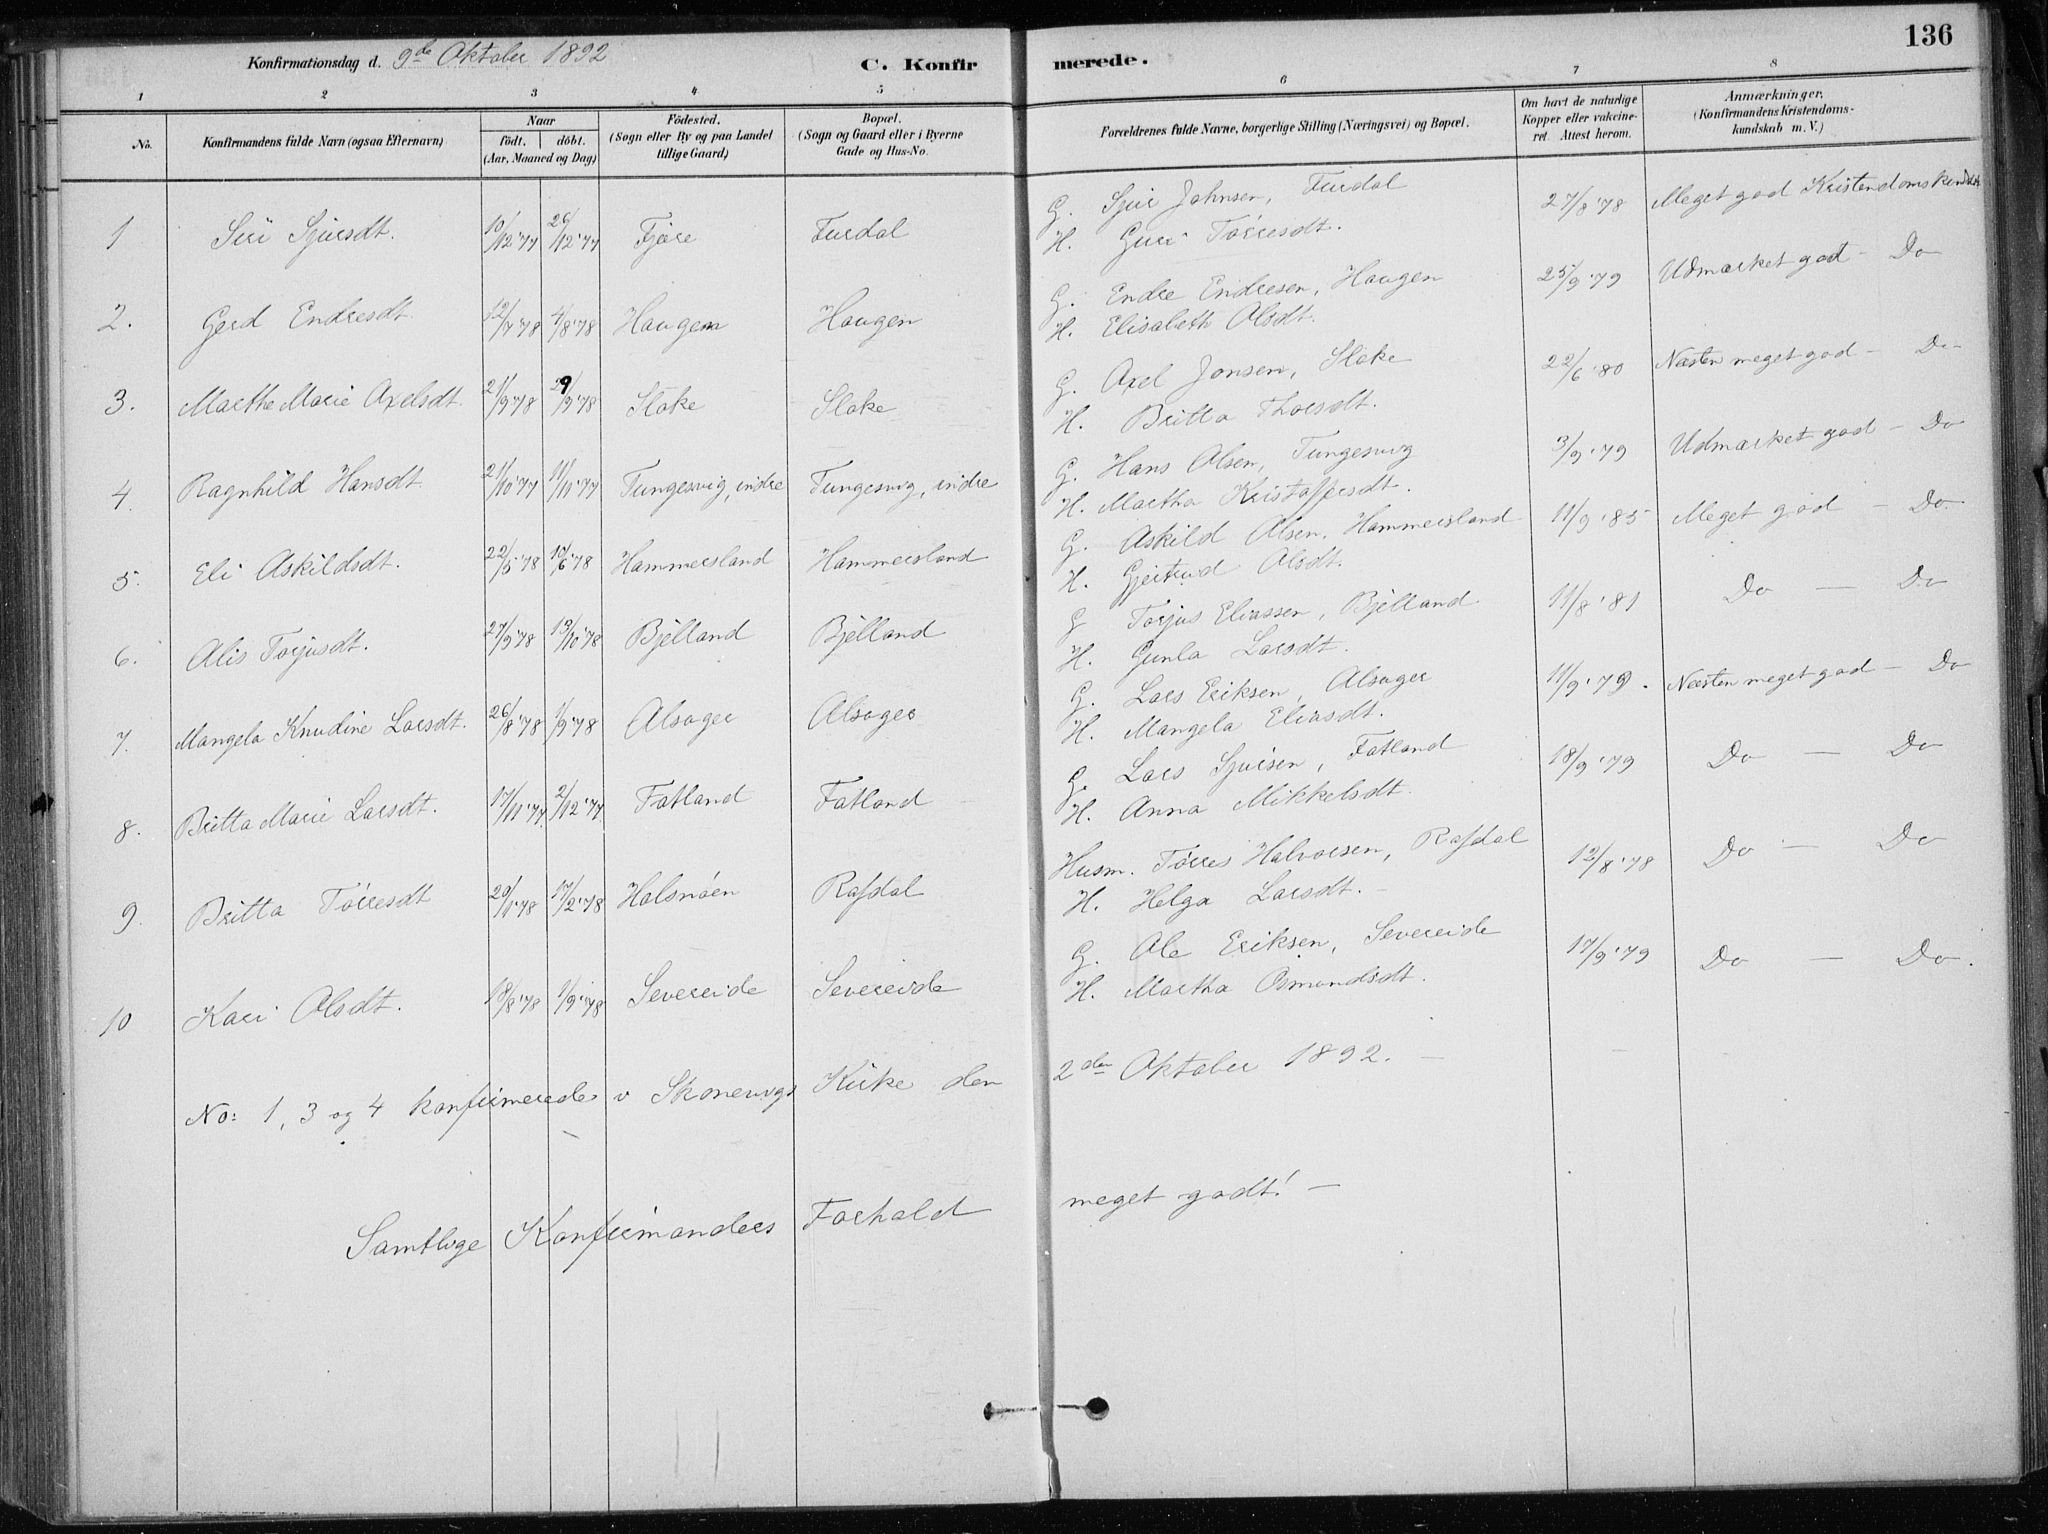 136
Konfirmationsdag d. 9de Oktober 1892 C. Konfirmerede.
1 2 3 4 5 6 7 8
No. Konfirmandens fulde Navn (ogsaa Efternavn) Naar födt. döbt. (Aar, Maaned og Dag) Födested. (Sogn eller By og paa Landet tillige Gaard) Bopæl. (Sogn og Gaard eller i Byerne Gade og Hus-No. Forældrenes fulde Navne, borgerlige Stilling (Næringsvei) og Bopæl. Om havt de naturlige Kopper eller vakcineret. Attest herom. Anmærkninger. (Konfirmandens Kristendomskundskab m. V.)
1 Siri Sjursdt. 10/12 '77 26/12 '77 Fjære Furdal G. Sjur Johnsen, Furdal 27/8 '78 Meget god Kristendomskundskab
H. Guri Tørresdt.
2. Gerd Endresdt. 12/7 '78 4/8 '78 Haugen Haugen G. Endre Endresen, Haugen 25/9 '79 Udmærket god – Do
H. Elisabeth Olsdt.
3. Marthe Marie Axelsdt. 21/9 '78 29/9 '78 Støke Støke G. Axel Jonsen, Støke 22/6 '80 Næsten meget god – Do
H. Britta Thorsdt.
4. Ragnhild Hansdt. 21/10 '77 11/11 '77 Tungesvig, indre Tungesvig, indre G. Hans Olsen, Tungesvig 3/9 '79 Udmærket god – Do
H. Martha Kristoffersdt.
5. Eli Askildsdt. 22/5 '78 10/6 '78 Hammersland Hammersland G. Askild Olsen, Hammersland 11/9 '85 Meget god – Do
H. Gjertrud Olsdt.
6. Alis Torjusdt. 27/9 '78 13/10 '78 Bjelland Bjelland G Torjus Eliassen, Bjelland 11/8 '81 Do – Do
H. Gunla Larsdt.
7. Mangela Knudine Larsdt. 26/8 '78 1/9 '78 Alsager Alsager G. Lars Eriksen, Alsager 11/9 '79. Næsten meget god – Do
H. Mangela Eliasdt.
8. Britta Marie Larsdt. 17/11 '77. 2/12 '77 Fatland Fatland G. Lars Sjursen, Fatland 18/9 '79 Do – Do
H. Anna Mikkelsdt.
9. Britta Tørresdt 20/1 '78 17/2 '78 Halsnøen Rafdal Husm. Tørres Halvorsen, Rafdal 12/8 '78 Do – Do
H. Helga Larsdt. –
10 Kari Olsdt. 18/8 '78 1/9 '78 Severeide Severeide G. Ole Eriksen, Severeide 17/9 '79 Do – Do.
H. Martha Osmundsdt.
No: 1, 3 og 4 konfirmerede i Skonevigs Kirke den 2den Oktober 1892. –
Samtlige Konfirmanders Forhold meget godt! –